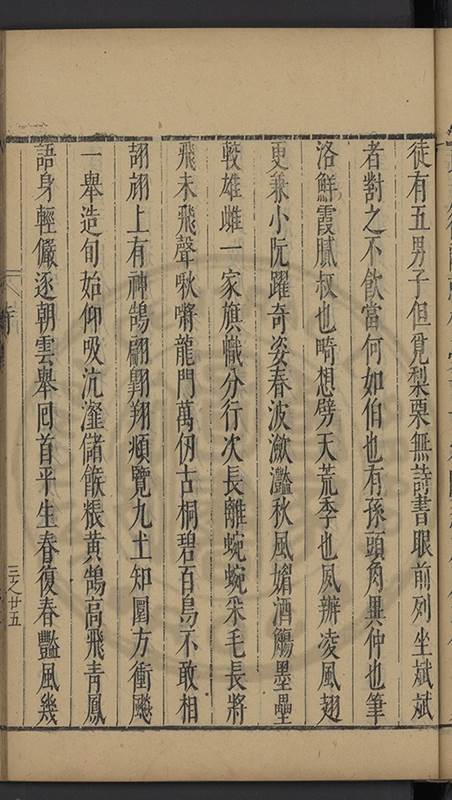 徒有五男子但覓梨栗無詩書眼前列坐斌斌
者對之不飲當何如伯也有孫頭角異仲也筆
洛鮮霞膩叔也畸想劈天荒季也夙辦凌風翅
更兼小阮躍奇姿春波瀲灩秋風媚酒觴墨壘
較雄雌一家旗幟分行次長離蜿蜿采毛長將
飛未飛聲啾嘶龍門萬仞古桐碧百鳥不敢相
翓翃上有神鵠翩翾翔煩覽九土知圜方衝飈
一舉造旬始仰吸沆瀣儲餱粻黃鵠高飛青鳳
語身輕儼逐朝雲舉回首平生春復春豔風幾
三之廿五